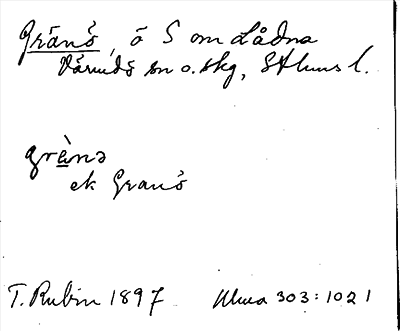 Granö, ö S om Lådna
Värmdö sn o. skg, Sthms l.
grànə
ek Granö
T. Rubin 1897 Uma 303:1021